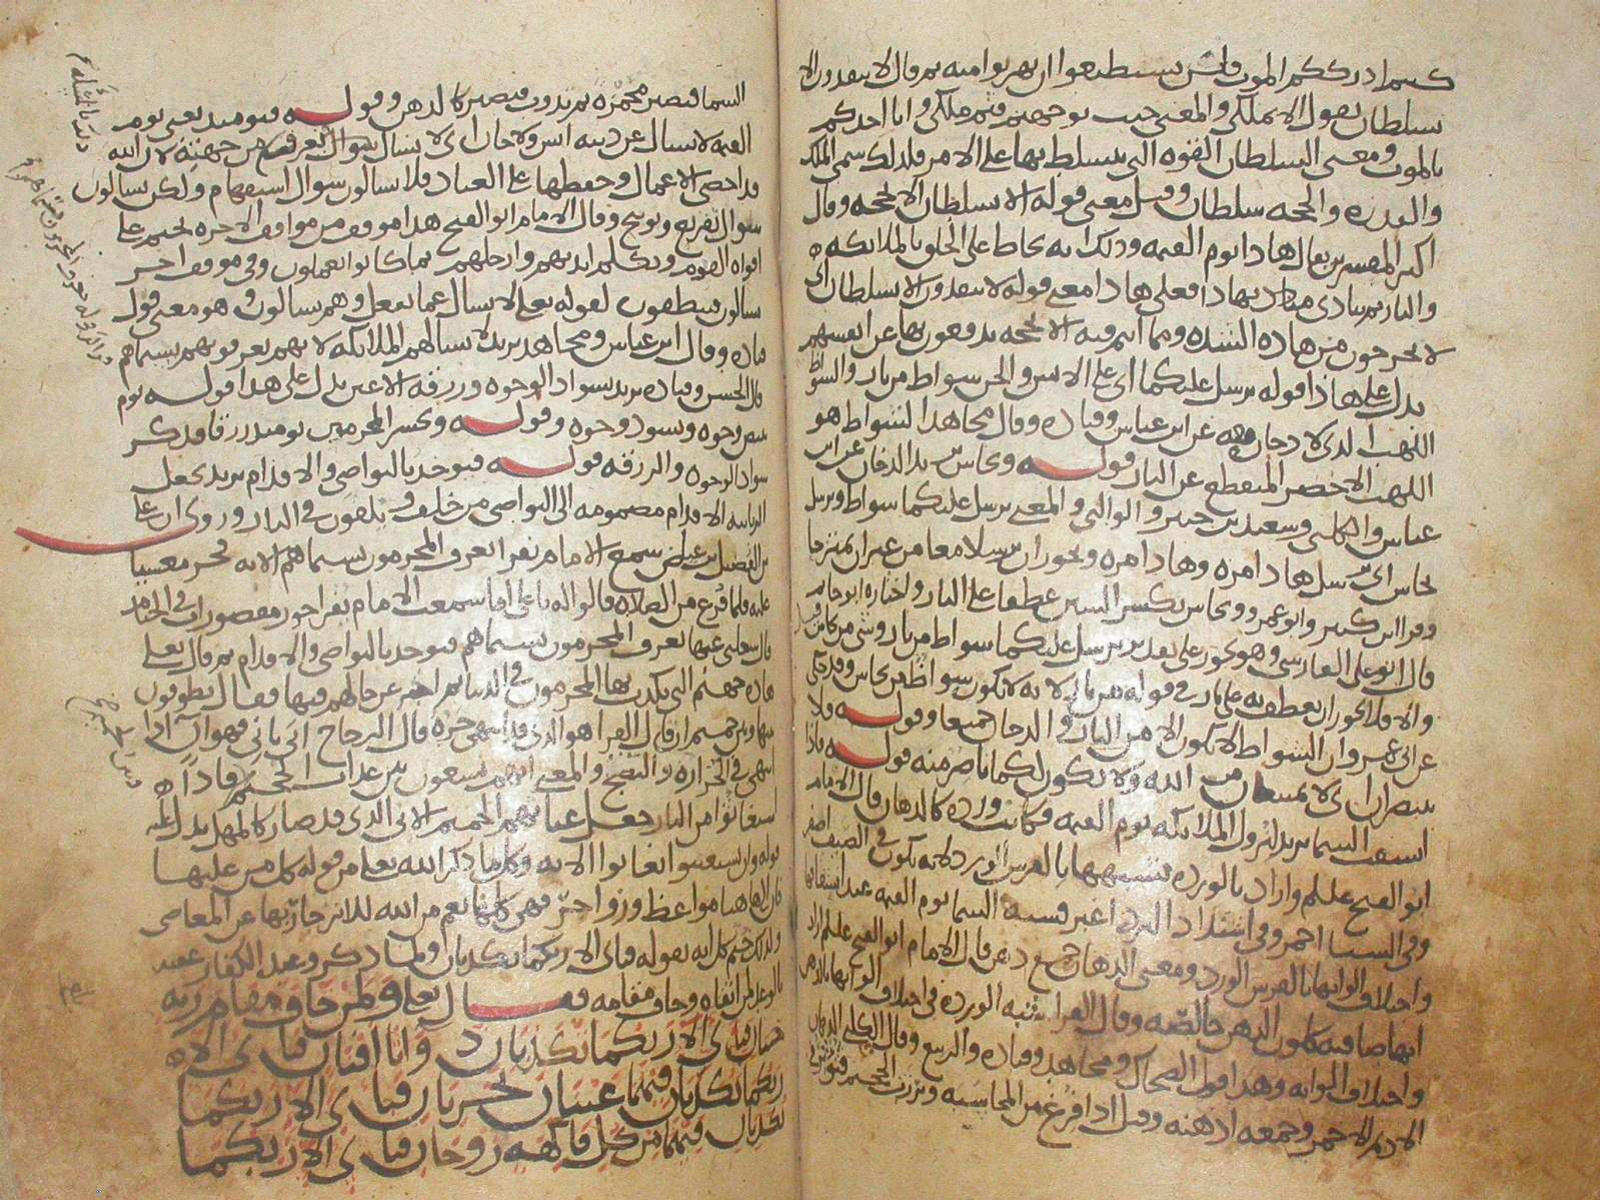 كنتم ادرككم الموت ولن تستطيعوا ان تهربوا منه ثم قال لا تنفذون الا
بسلطان يقول الا بملكي والمعنى حيث توجهتم فثم ملكي وانا اخذكم
بالموت ومعنى السلطان القوه التي يتسلط بها على الامر فلذلك سمي الملك
والقدره والحجه سلطان وقيل معنى قوله الا بسلطان الا بحجه وقال
اكثر المفسرين يقال هاذا يوم القيمه وذلك انه يحاط على الخلق بالملايكه
والنار ثم ينادى بهاذا فعلى هاذا معنى قوله لا تنفذون الا بسلطان
لا تخرجون من هاذه الشده ومما انتم فيه الا بحجه تدفعون بها عن انفسهم
يدل على هاذا قوله يرسل عليكما اي على الانس والجن شواظ من نار والشواظ
اللهب الذي لا دخان معه عن ابن عباس وقتاده وقال مجاهد الشواظ هو
اللهب الاخضر المنقطع عن النار قوله ونحاس يريد الدخان عن ابن
عباس والكلبي وسعيد بن جبير والوالبي والمعنى يرسل عليكما شواظ ويرسل
نحاس اي يرسل هاذا مره وهاذا مره ويجوز ان يرسلا معا من غير ان يمتزجا
وقرا ابن كثير وابو عمرو ونحاس بكسر السين عطفا على النار واختاره ابو حاتم
قال ابو علي الفارسي وهو يجوز على تقدير يرسل عليكما شواظ من نار وشي من نحاس
والا فلا يجوز ان يعطف به على نار في قوله من نار لانه لا يكون شواظ من نحاس وقد حكي
عن ابي عمرو ان الشواظ لا يكون الا من النار والدخان جميعا وقوله فلا
تنتصران اي لا تمتنعان من الله ولا يكون لكما ناصر منه قوله فاذا
انشقت السما يريد لنزول الملايكه يوم القيمه فكانت ورده كالدهان قال الامام
ابو الفتح عليلم واراد بالورده تشبيهها بالفرس الورد لانه يكون في الصيف اصفر
وفي الشتا احمر وفي اشتداد البرد اغبر فشبه السما يوم القيمه عند انشقاقها
واختلاف الوانها بالفرس الورد ومعنى الدهان جمع دهن قال الامام ابو الفتح عليلم اراد
انها صافيه كلون الدهن خالصه وقال الفرا شبه الورده في اختلاف الوانها بالدهن
واختلاف الوانه وهذا قول الضحاك ومجاهد وقتاده والربيع وقال الكلبي الدهان
الاديم الاحمر وجمعه ادهنه وقيل اذا فرغ من المحاسبه وبرزت الجحيم فتوثر في
السما فتصير محمره ثم تذوب فتصير كالدهن وقوله فيومئذ يعني يوم
القيمه لا يسال عن ذنبه انس ولا جان اي لا يسال سوال تعرف من جهته لان الله
قد احصى الاعمال وحفظها على العباد فلا يسالون سوال استفهام ولكن يسالون
سوال تقريع وتوبيخ وقال الامام ابو الفتح هذا موقف من مواقف الاخره يختم على
افواه القوم وتتكلم ايديهم وارجلهم بما كانوا يعملون وفي موقف اخر
يسالون فينطقون لقوله تعلى لا يسال عما يفعل وهم يسالون وهو معنى قول
قتاده وقال ابن عباس ومجاهد يريد لا يسالهم الملايكه لانهم يعرفونهم بسيماهم
قال الحسن وقتاده يريد بسواد الوجوه وزرقه الاعين يدل على هذا قوله يوم
تبيض وجوه وتسود وجوه وقوله ونحشر المجرمين يومئذ زرقا فذكر
سواد الوجوه والزرقه قوله فيوخذ بالنواصي والاقدام يريد يجعل
الزبانيه الاقدام مضمومه الى النواصي من خلف ويلقون في النار وروي ان علي
بن الفضيل بن عياض سمع الامام يقرا يعرف المجرمون بسيماهم الايه فخر مغشيا
عليه فلما فرغ من الصلاه قالوا له يا علي اما سمعت الامام يقرا حور مقصورات في الخيام
قال شغلني عنها يعرف المجرمون بسيماهم فيوخذ بالنواصي والاقدام ثم قال تعلى
هاذه جهنم التي يكذب بها المجرمون في الدنيا ثم اخبر عن حالهم فيها فقال يطوفون
بينها وبين حميم ان قال الفرا هو الذي قد انتهى حره قال الزجاج انى ياني فهو آن اذا
انتهى في الحراره والنضج والمعنى انهم يسعون بين عذاب الجحيم فاذا
استغاثوا من النار جعل غياثهم الحميم الاني الذي قد صار كالمهل يدل عليه
قوله وان يستغيثوا يغاثوا الايه وكل ما ذكر الله تعلى من قوله كل من عليها
فان الى هاهنا مواعظ وزواجر فهي كلها نعم من الله للانزجار بها عن المعاصي
ولذلك ختم كل ايه بقوله فباي الا ربكما تكذبان ولما ذكر وعيد الكفار عقبه
بالوعد لمن اتقاه وخاف مقامه فقال تعلى ولمن خاف مقام ربه
جنتان فباي الا ربكما تكذبان ذواتا افنان فباي الا
ربكما تكذبان فيهما عينان تجريان فباي الا ربكما
تكذبان فيهما من كل فاكهه زوجان فباي الا ربكما